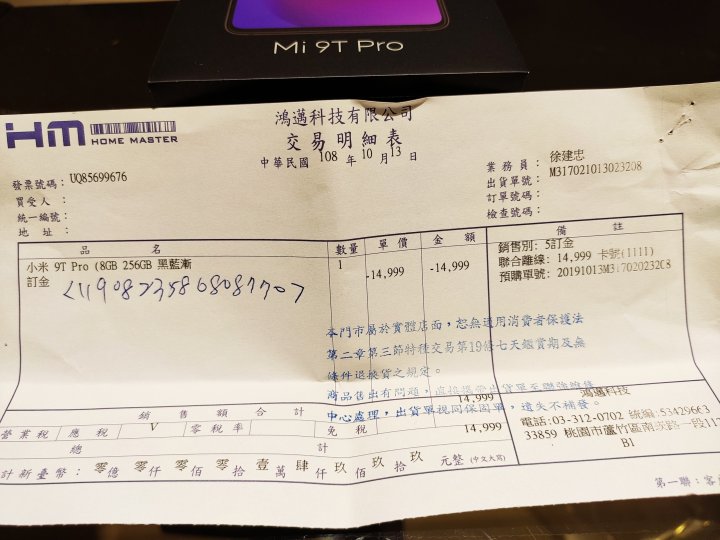 Mi 9T Pro
HM HOME MASTER
鴻邁科技有限公司
交易明細表
中華民國 108 年 10 月 13 日
發票號碼：UQ85699676
買受人：
統一編號：
地址：
業務員：徐建忠
出貨單號：M317021013023208
訂單號碼：
檢查號碼：
品名 數量 單價 金額 備註
小米 9T Pro (8GB 256GB 黑藍漸 1 -14,999 -14,999
訂金
銷售別: 5訂金
聯合離線: 14,999 卡號(1111)
預購單號: 20191013M317020232C8
本門市屬於實體店面，恕無適用消費者保護法
第二章第三節特種交易第19條七天鑑賞期及無
條件退換貨之規定。
商品售出有問題，
中心處理，出貨單視同保固單，遺失不補發。
銷售額合計 14,999
營業稅 應稅 V 零稅率 免稅
總計 14,999
計新臺幣：零億零仟零佰零拾壹萬肆仟玖佰玖拾玖元整 (中文大寫)
鴻邁科技
電話:03-312-0702 統編:534296
33859 桃園市蘆竹區南崁路一段
B1
第一聯：客